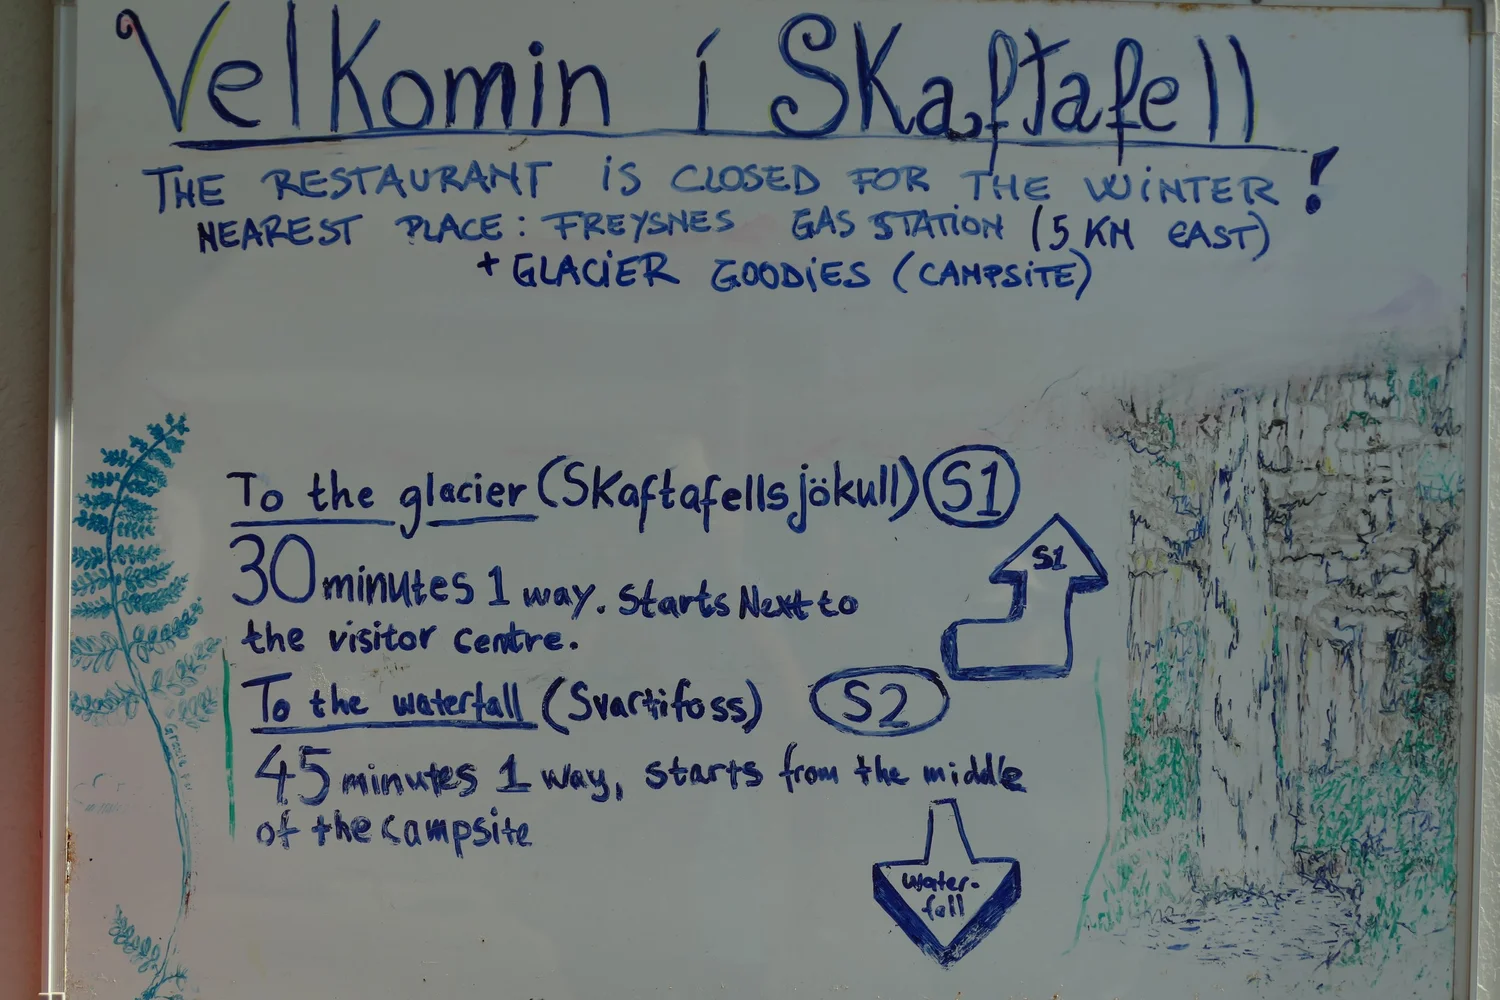 Velkomin í Skaftafell
THE RESTAURANT IS CLOSED FOR THE WINTER!
NEAREST PLACE: FREYSNES GAS STATION (5 KM EAST)
+ GLACIER GOODIES (CAMPSITE)
To the glacier (Skaftafellsjökull) S1
30 minutes 1 way. Starts Next to
the visitor centre.
S1
To the waterfall (Svartifoss) S2
45 minutes 1 way, starts from the middle
of the campsite
water-
fall